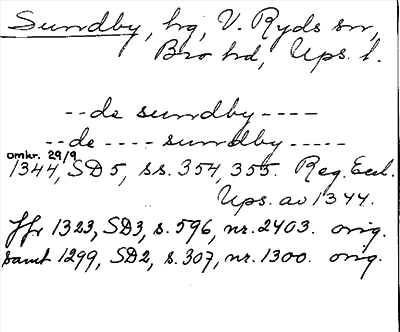 Sundby, hg, V. Ryds sn,
Bro hd, Ups. l.
--de sundby----
--de----sundby-----
omkr. 29/9
1344, SD5, ss. 354, 355. Reg. Eccl.
Ups. av 1344.
Jfr 1323, SD3, s. 596, nr. 2403. orig.
samt 1299, SD2, s. 307, nr. 1300. orig.